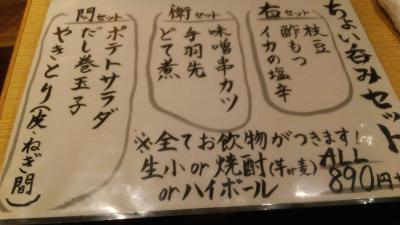 ちょい呑みセット
右セット
枝豆
酢もつ
イカの塩辛
衛セット
味噌串カツ
手羽先
どて煮
門セット
ポテトサラダ
だし巻玉子
やきとり(皮・ねぎ間)
※全てお飲物がつきます!
生小or焼酎(芋or麦)
orハイボール
ALL
890円+